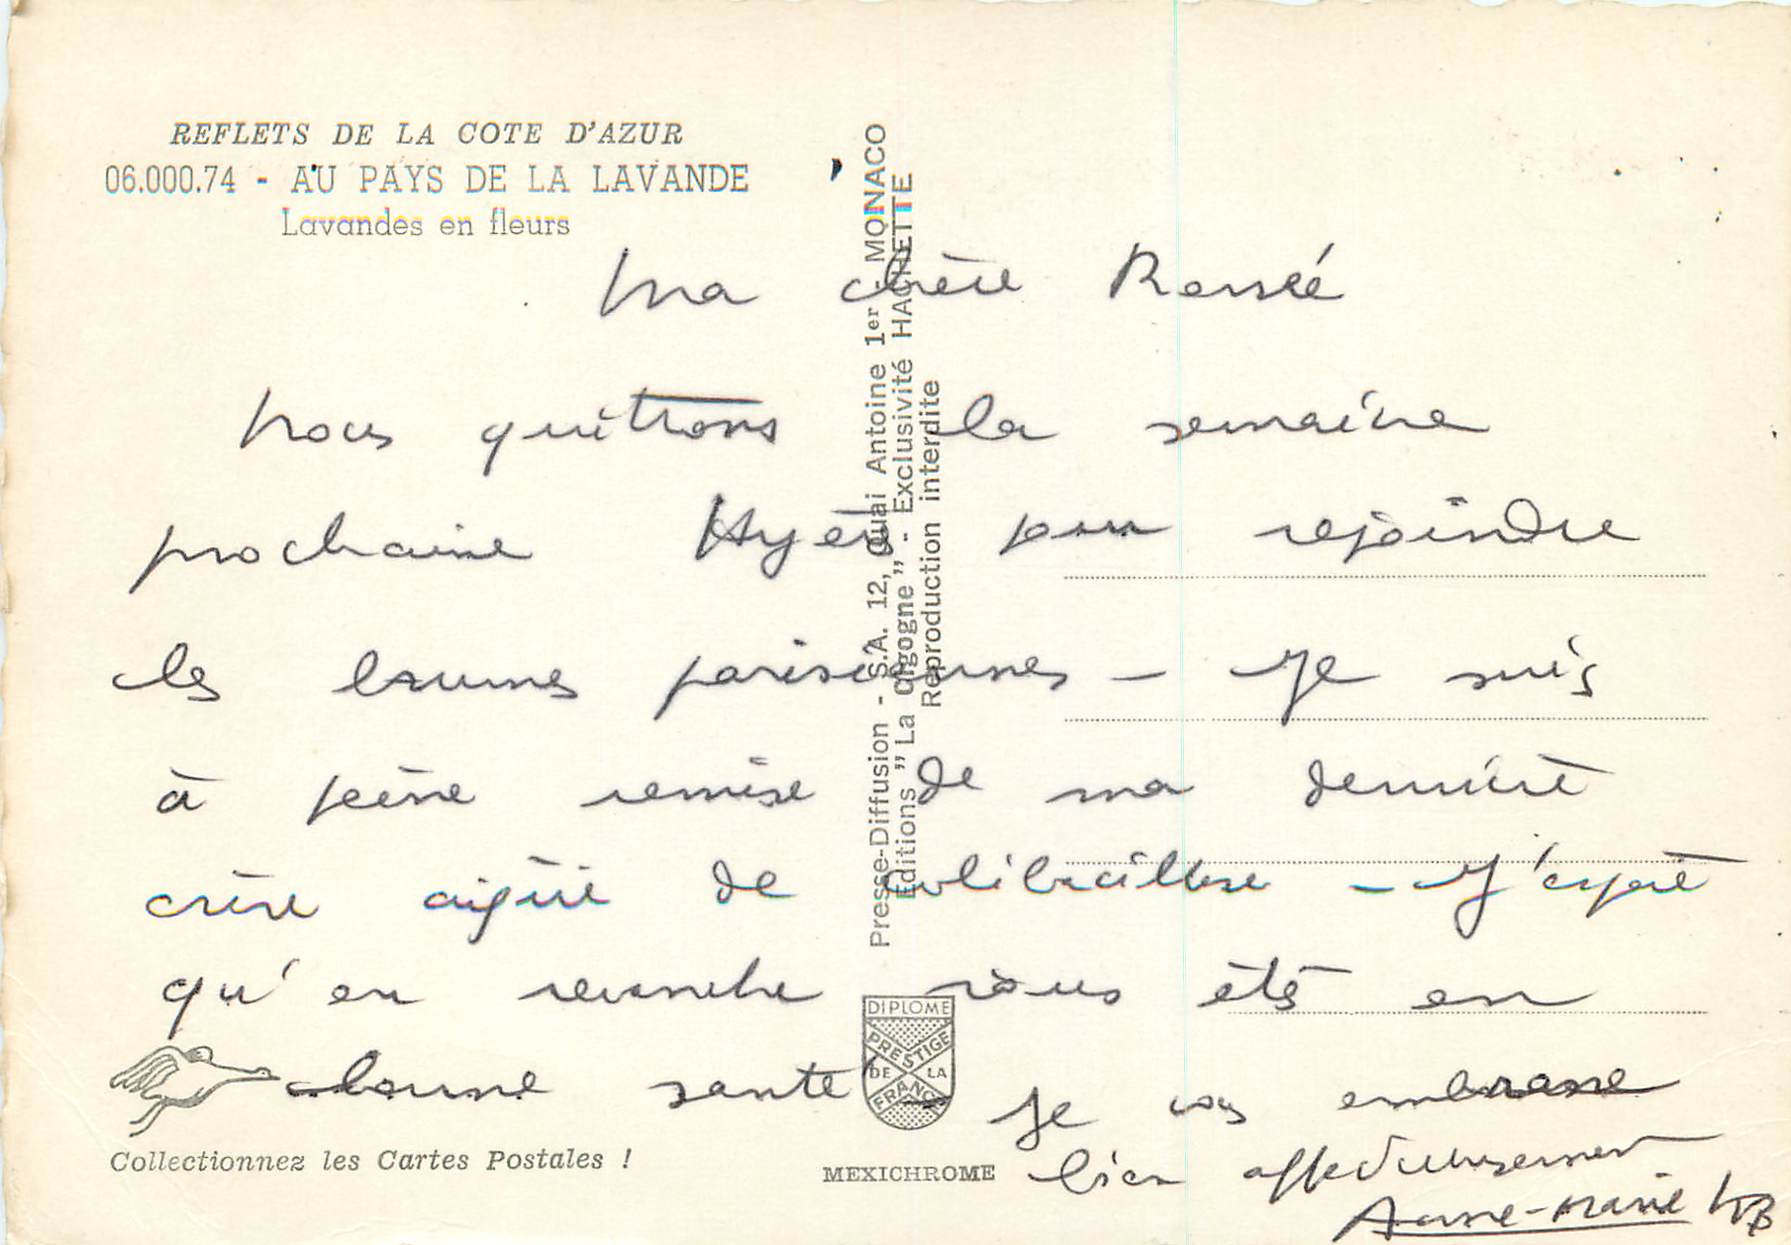 REFLETS DE LA COTE D'AZUR
06.000.74 - AU PAYS DE LA LAVANDE
Lavandes en fleurs
Ma chère Renée
Nous quittons la semaine
prochaine Hyères pour rejoindre
les brumes parisiennes - Je suis
à peine remise de ma dernière
crise aigüe de colibacillose - J'espère
qu'en revanche vous êtes en
bonne santé - Je vous embrasse
bien affectueusement
Anne-Marie
Presse-Diffusion - S.A. 12, Quai Antoine 1er - MONACO
Editions "La Cigogne" - Exclusivité HACHETTE
Reproduction interdite
DIPLOME
PRESTIGE
DE LA
FRANCE
Collectionnez les Cartes Postales !
MEXICHROME